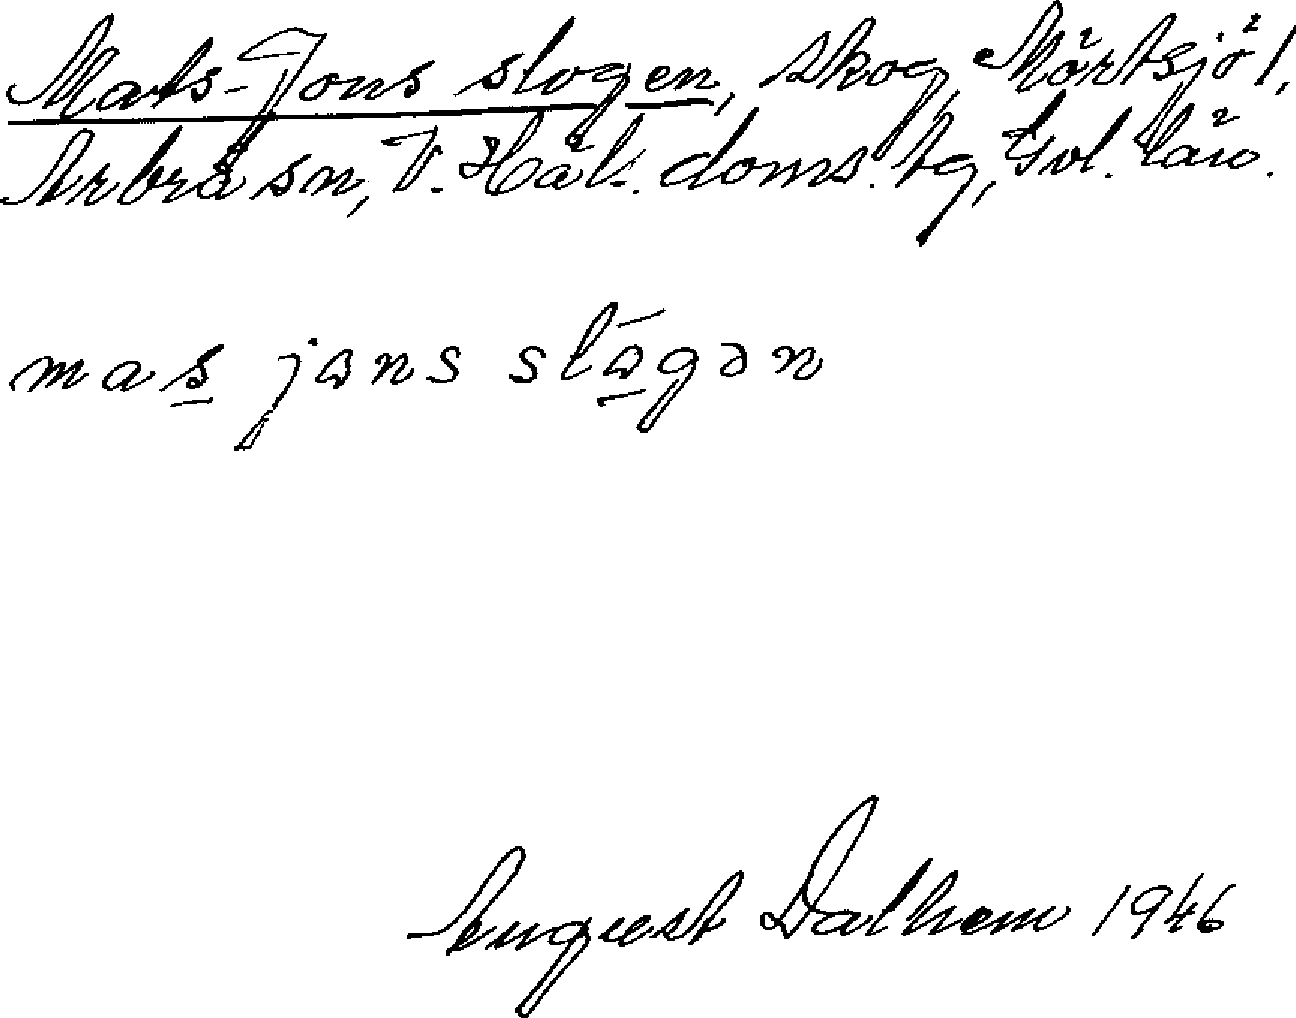 Mats-Jons slogen, skog, Mörtsjö 1,
Arbrå sn, V. Häls. doms. tg, Gvl. län.
mas jɷns slɷ́gən
August Dalhem 1946